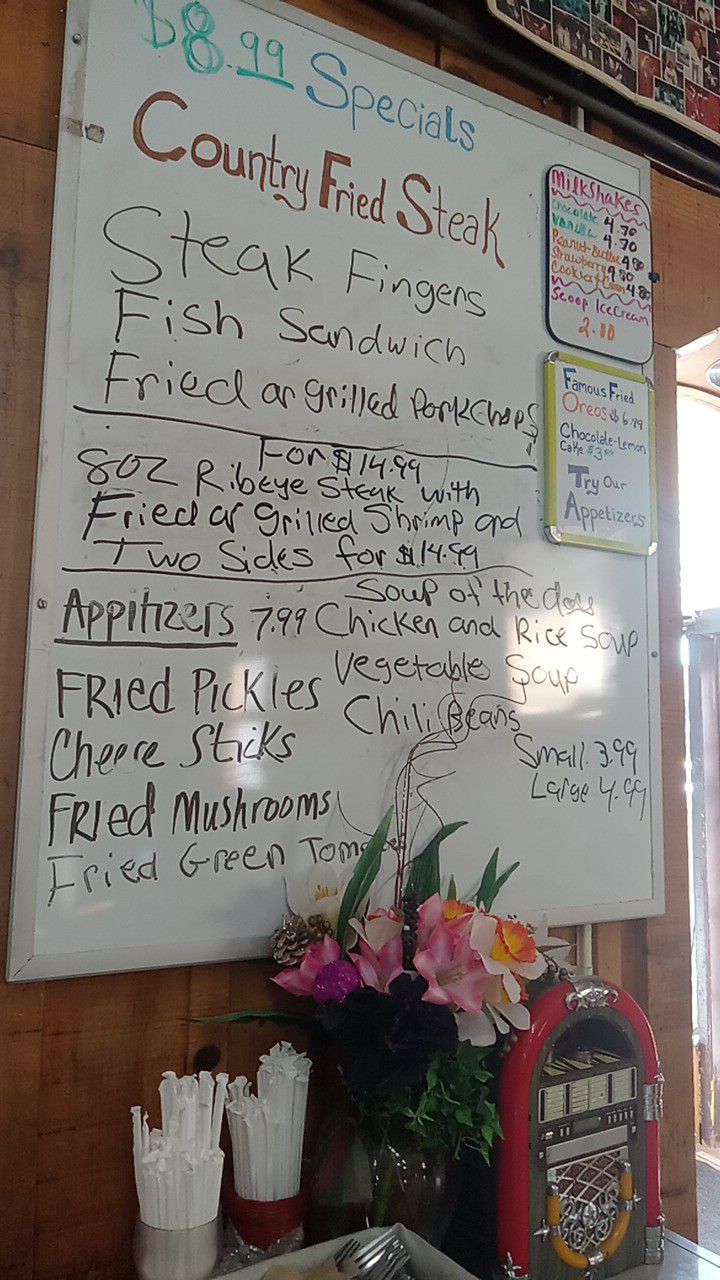 $8.99 Specials
Country Fried Steak
Steak Fingers
Fish Sandwich
Fried or grilled Pork Chops
For $14.99
8oz Ribeye Steak with
Fried or grilled Shrimp and
Two Sides for $14.99
Appitizers 7.99
Fried Pickles
Cheese Sticks
Fried Mushrooms
Fried Green
Soup of the day
Chicken and Rice Soup
Vegetable Soup
Chili Beans
Small 3.99
Large 4.99
Milkshakes
Chocolate 4.70
Vanilla 4.70
Peanut-Butter 4.80
Strawberry 4.80
Cookies & Cream 4.80
Scoop IceCream
2.00
Famous Fried
Oreos $6.99
Chocolate-Lemon
Cake
Try Our
Appetizers